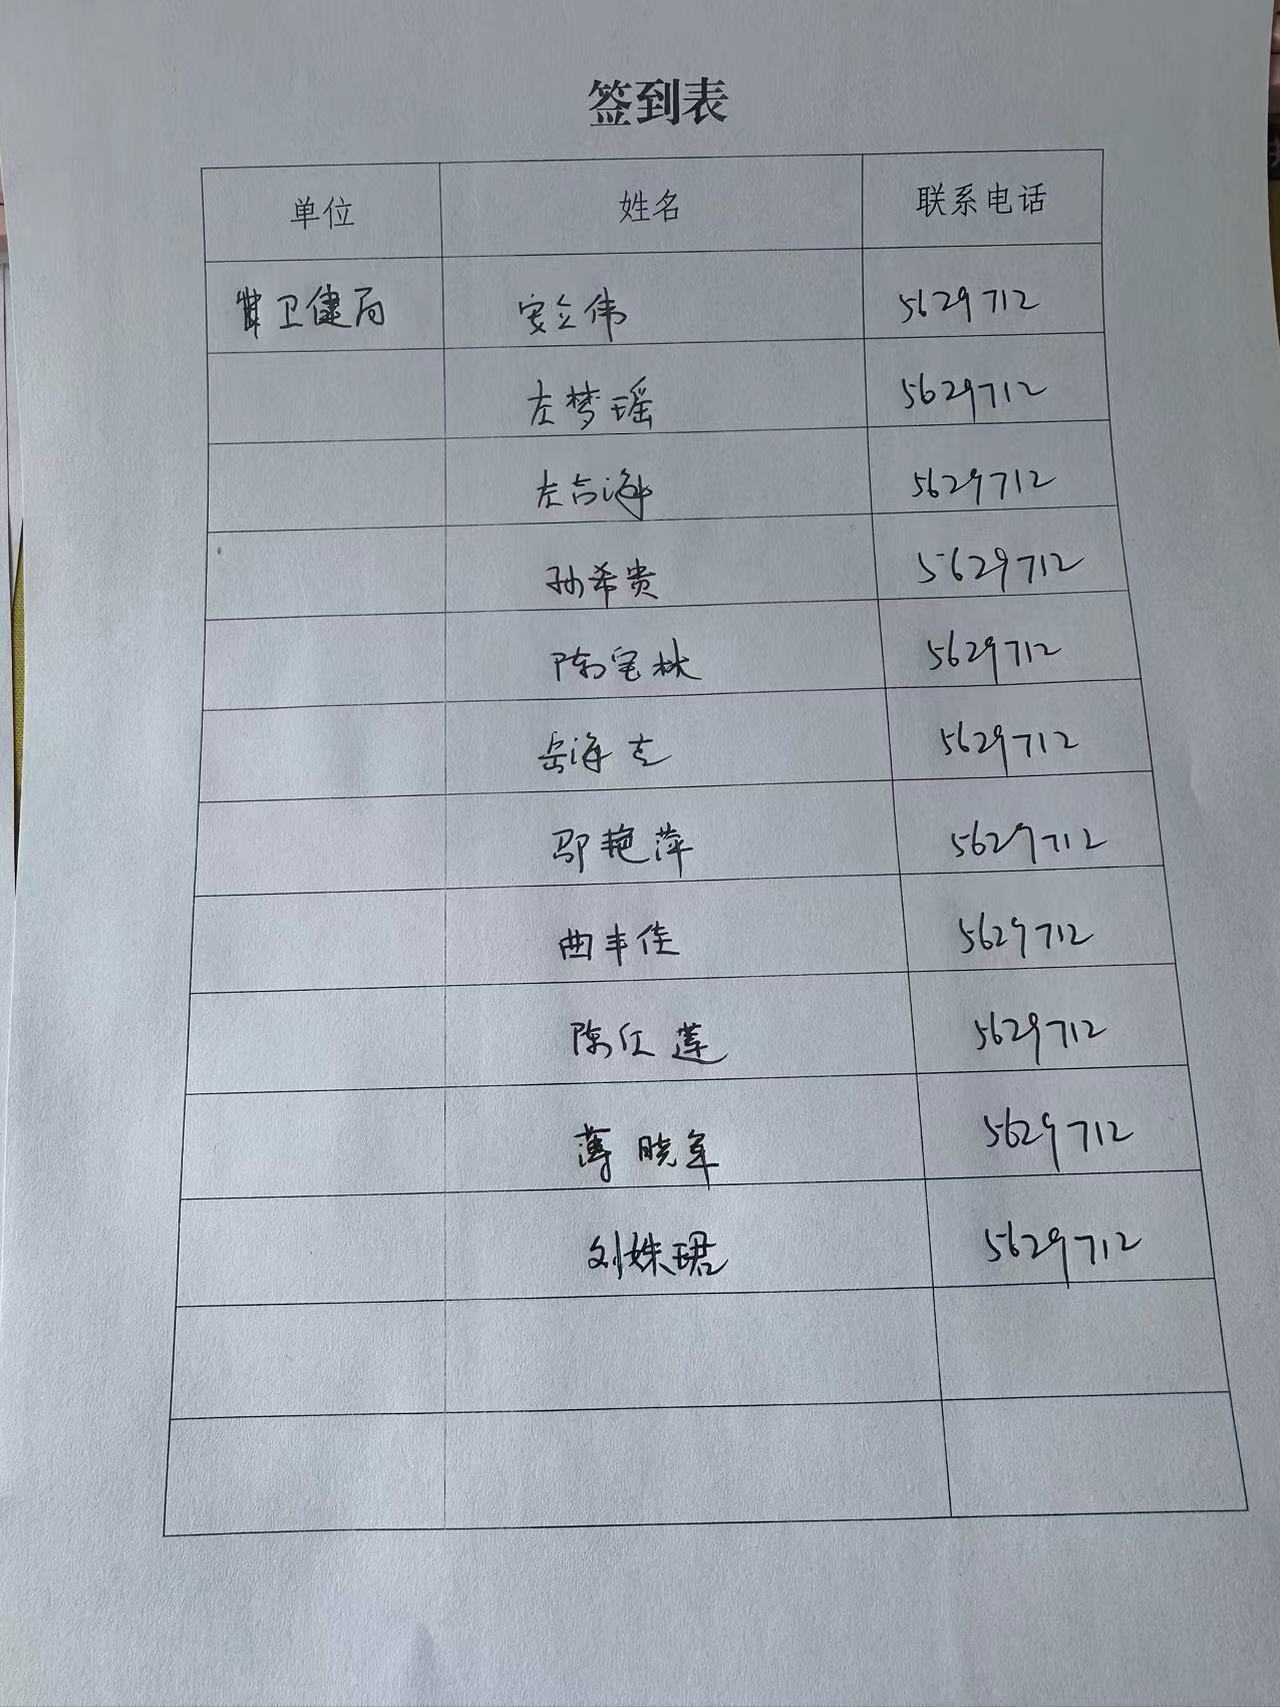 签到表
单位 姓名 联系电话
卫健局 安立伟 5629712
左梦瑶 5629712
左吉海 5629712
孙希贵 5629712
陈宝秋 5629712
岳海 5629712
邬艳萍 5629712
曲丰佳 5629712
陈仕莲 5629712
薄晓军 5629712
刘姝珺 5629712